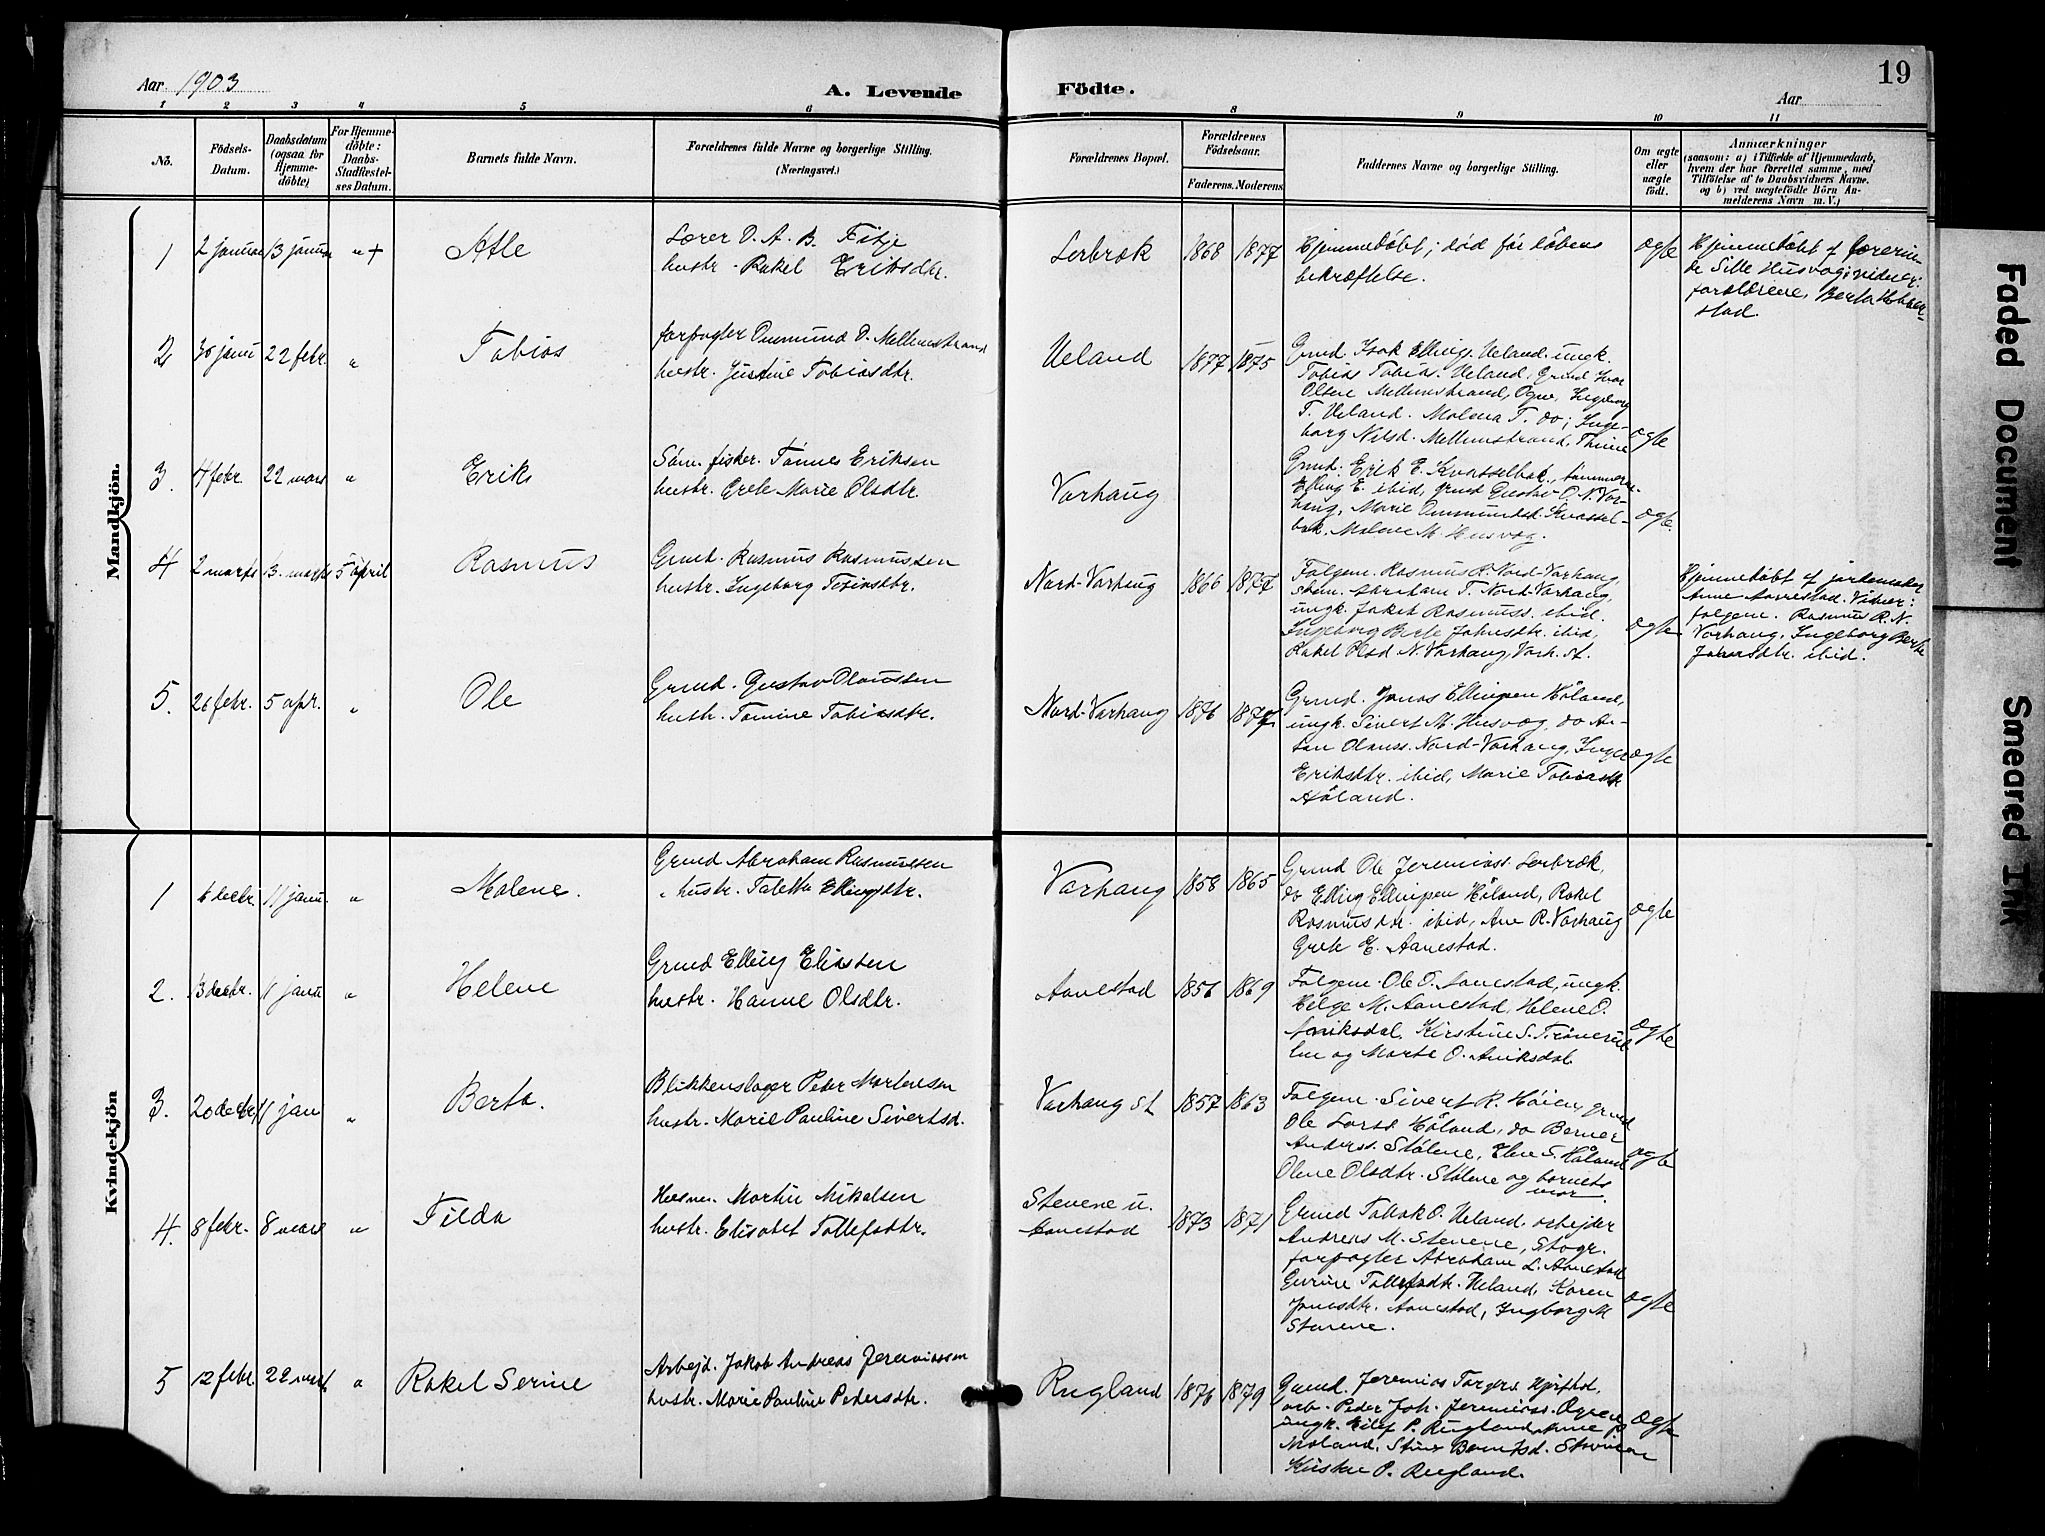 Aar 1903
A. Levende
Födte.
19
Aar
1 2 3 4 5 6 8 9 10 11
Nö.
Födsels-
Datum.
Daabsdatum
(ogsaa for
Hjemme-
döbte)
For Hjemme-
döbte:
Daabs-
Stadfæstel-
ses Datum.
Barnets fulde Navn.
Forældrenes fulde Navne og borgerlige Stilling.
(Næringsvei.)
Forældrenes Bopæl.
Forældrenes
Födselsaar.
Faderens. Moderens.
Faddernes Navne og borgerlige Stilling.
Om ægte
eller
uægte
födt.
Anmærkninger
(saasom: a) i Tilfælde af Hjemmedaab,
hvem der har forrettet samme, med
Tilföielse af to Daabsvidners Navne.
og b) ved uægtefödte Börn An-
melderens Navn m. V.)
Mandkjön.
1 2 januar 13 januar " + Atle
Lærer O. A. B. Fitje
hustr. Rakel Eriksdtr.
Lerbræk 1868 1877
Hjemmedöbt; död för döbens
bekræftelse.
ægte
Hjemmedöbt af lærerin-
de Sille Husvæg; vidner:
forældrene, Berta
stad.
2 30 janu 22 febr. " Tobias
forpagter Ommund O. Mellemstrand
hustr. Justine Tobiasdtr.
Ueland 1877 1875
Grmd. Isak Ellings. Ueland, ungk.
Tobias Tobias. Ueland, Grmd Ivar
Olsen Mellemstrand, Ogne, Ingeborg
T. Ueland. Malena T. do; Inge-
borg Nilsd. Mellemstrand, Thime
ægte
3. 4 febr. 22 mars " Erik
Söm. fisker. Tönnes Eriksen
hustr. Grete Marie Olsdtr.
Varhaug
Grmd. Erik E. Kvasselbek,
Elling E. ibid, grmd Gustav O. N. Var-
haug, Marie Ommundsd. Kvassel-
bek, Malene M. Husvæg.
ægte.
4 2 marts 13. marts 5 april Rasmus
Grmd. Rasmus Rasmussen
hustr. Ingeborg Tobiasdtr.
Nord-Varhaug 1866 1877
Folgem. Rasmus R. Nord-Varhaug,
Abraham T. Nord-Varhaug,
ungk. Jakob Rasmuss. ibid.
Ingeborg Berte Johnsdtr. ibid,
Rakel Olsd N. Varhaug, Varh. st.
ægte
Hjemmedöbt af jordemoder
Anne Aarrestad. Vidner:
folgem. Rasmus R. N.
Varhaug, Ingeborg Berte
Johnsdtr. ibid.
5. 26 febr. 5 apr. " Ole
Grmd. Gustav Olaussen
hustr. Tomine Tobiasdtr.
Nord-Varhaug 1876 1877
Grmd. Jonas Ellingsen Höland,
ungk. Sivert M. Husvæg, do An-
ton Olauss. Nord-Varhaug, Inger
Eriksdtr. ibid, Marie Tobiasdtr
Höland.
ægte
Kvindekjön
1 6 decbr. 11 janu. " Malene.
Grmd Abraham Rasmussen
hustr. Taletta Ellingsdtr.
Varhaug 1858 1865
Grmd Ole Jeremiass. Lerbræk,
do Elling Ellingsen Höland, Rakel
Rasmusdtr. ibid, Ane R. Varhaug
Grete E. Aanestad.
ægte
2. 13 decbr. 11 janu " Helene
Grmd Elling Eliassen
hustr. Hanne Olsdtr.
Aanestad 1856 1869
Folgem. Ole O. Aanestad, ungk.
Helge M. Aanestad, Helene O.
Aniksdal, Kirstine S.
og Marte O. Aniksdal
ægte
3. 20 decbr 11 jan " Berta.
Blikkenslager Peder Mortensen
hustr. Marie Pauline Sivertsd.
Varhaug st 1857 1863
Folgem. Sivert R. Höien, grmd
Ole Larss Höland, do Berner
Anderss. Stölene, Elen S. Håland
Olene Olsdtr. Stölene og barnets
mor.
ægte
4. 8 febr. 8 mars " Tilda
Husm. Martin Mikalsen
hustr. Elisabet Tollefsdtr.
Stenene u.
Aanestad 1873 1871
Grmd Tollak O. Ueland, arbejder
Andreas M. Stenene, Skogr.
forpagter Abraham L. Aanestad
Gurine Tollefsdtr. Ueland, Karen
Jonasdtr. Aanestad, Ingborg M
Stenene.
ægte
5 12 febr. 22 mars " Rakel Serine
Arbejd. Jakob Andreas Jeremiassen
hustr. Marie Pauline Pedersdtr.
Rugland 1876 1879
Grmd. Jeremias Torgers
arb. Peder Joh. Jeremiass. Ogne
ungk. Eilef P. Rugland,
Moland, Stine
P. Rugland.
ægte
Faded Document
Smeared Ink